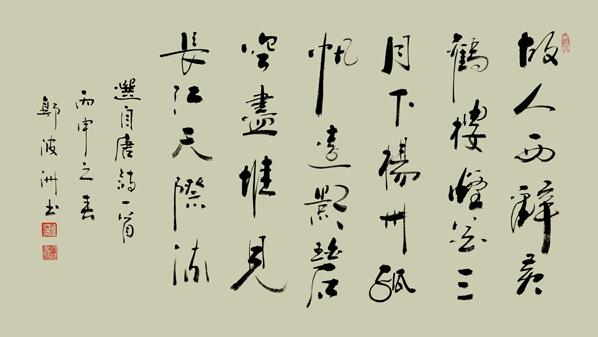 故人西辭黃
鶴樓煙花三
月下楊州孤
帆遠影碧
空盡惟見
長江天際流
選自唐詩一首
丙申之春
鄭波洲书